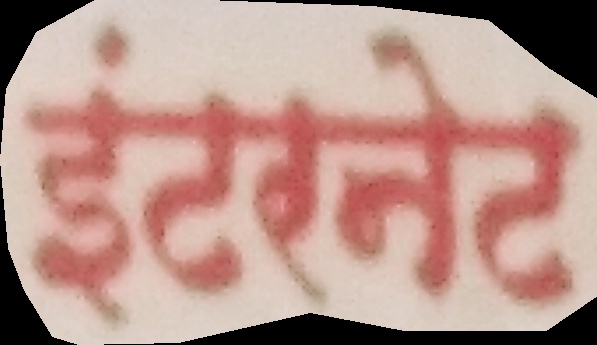 इंटरनेट